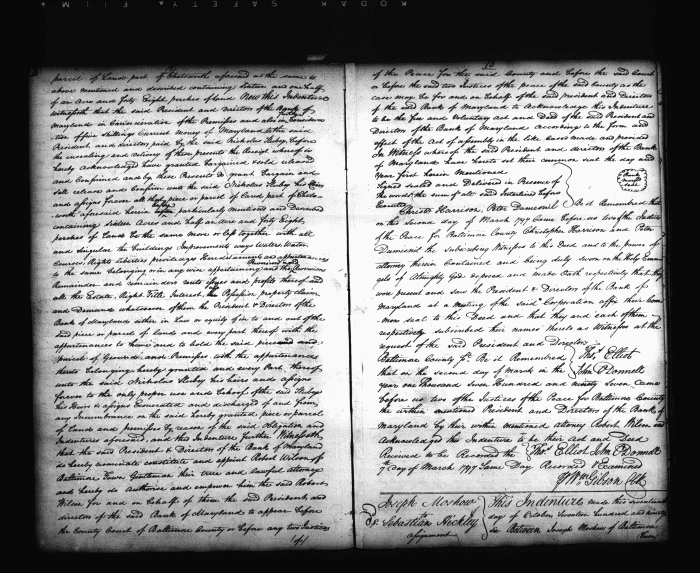 KODAK SAFETY FILM
parcel of Land part of Chatsworth aforesaid as the same is
above mentioned and described containing sixteen acres and half
of an Acre and forty Eight perches of land Now this Indenture
witnesseth that the said President and Directors of the Bank of
Maryland in Consideration of the Premises and also in Consideration
of five shillings Current money of Maryland to the said
President and directors paid by the said Nicholas Sluby before
the ensealing and delivery of these presents the Receipt whereof is
hereby acknowledged have granted bargained & sold released
and Confirmed and by these Presents do grant Bargain and
sell release and Confirm unto the said Nicholas Sluby his Heirs
and assigns forever all that piece or parcel of land part of Chats
worth aforesaid herein before particularly mentioned and Described
containing sixteen Acres and half an acre and forty Eight
perches of Land be the same more or less together with all
and singular the buildings Improvements ways Waters Water
Courses Rights liberties priviledges Hereditaments and appurtenances
to the same belonging or in any wise appertaining and the reversions
Remainder and remainders rents issues and profits thereof and
all the Estate, Right Title Interest, Use Possession property Claim
and Demand whatsoever of them the President & Directors of the
Bank of Maryland either in Law or equity of in to and out of the
said piece or parcel of lands and every part thereof with the
appurtenances to have and to hold the said piece and
parcels of Ground and Premises with the appurtenances
thereto belonging, hereby granted and every Part thereof
unto the said Nicholas Sluby his heirs and assigns
forever to the only proper use and behoof of the said Sluby
his Heirs & assigns Exonerated and discharged of and from
any Incumbrance on the said hereby granted piece or parcel
of Lands and premises by reason of the said Obligation and
Indentures aforesaid, and this Indenture further Witnesseth
that the said President & Directors of the Bank of Maryland
do hereby nominate constitute and appoint Robert Wilson of
Baltimore Town Gentleman their true and lawful attorney
and hereby do Authorise and empower him the said Robert
Wilson for and on behalf of them the said President and
directors of the said Bank of Maryland to appear before
the County Court of Baltimore County or before any two Justices
(of)
of the Peace for the said County and before the said Court
or before the said two Justices of the peace of the said County as the
case may be for and on behalf of the said president and Directors
of the said Bank of Maryland to Acknowledge this Indenture
to be the Law and Voluntary act and Deed of the said President and
Directors of the Bank of Maryland according to the form and
effect of the Act of assembly in the like cases made and provided
In Witness whereof the said President and directors of the Bank
of Maryland have hereto set their common seal the day and
Year first herein Mentioned
Signed sealed and Delivered in Presence of
Christr. Harrison, Peter Dumesnil Be it Remembered that
on this Second day of March 1797 Came before us two of the Justices
of the Peace for Baltimore County Christopher Harrison and Peter
Dumesnil the Subscribing Witnesses to this Deed and to the power of
attorney therein Contained and being duly sworn on the Holy Evan
gels of Almighty God deposed and made Oath respectively that they
were present and saw the President & Directors of the Bank of
Maryland at a Meeting of the said Corporation affix their Com
mon seal to this Deed and that they and each of them
respectively subscribed their names thereto as Witnesses at the
request of the said President and Directors
Thos. Elliot
John O'Donnell
Baltimore County Sct. Be it Remembered
that on the second day of March in the
year one Thousand Seven Hundred and ninety Seven Came
before us two of the Justices of the Peace for Baltimore County
the within mentioned President and Directors of the Bank of
Maryland by their within mentioned attorney Robert Wilson and
Acknowledged this Indenture to be their act and Deed
Thos. Elliot John O'Donnell
Received to be Recorded the
7th day of March 1797 Same Day Recorded & Examined
Wm. Gibson Clk
Joseph Moskow
&
Sebastian Hickley
assignment
This Indenture made this
day of October Seventeen hundred and ninety
Six Between Joseph Moskow of Baltimore